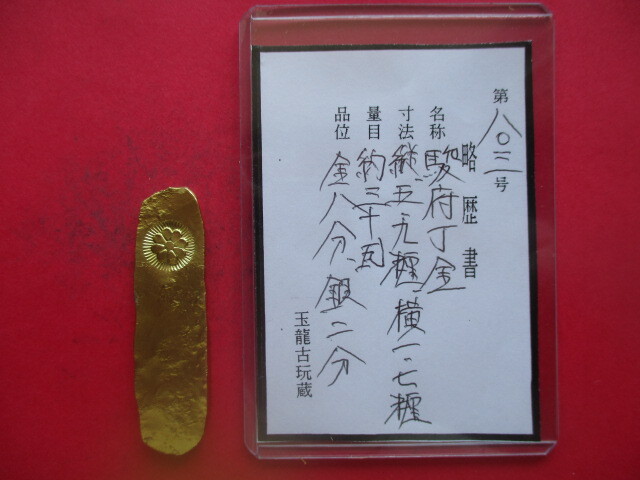 略歴書
第八〇三号
名称 駿府丁金
寸法 縦五・九糎、横一・七糎
量目 約三十瓦
品位 金八分、銀二分
玉龍古玩蔵